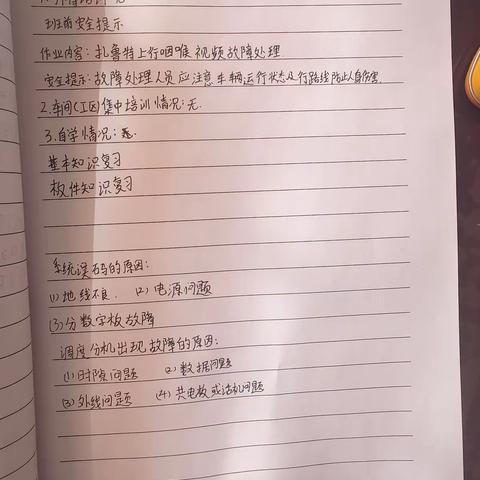 班前安全提示
作业内容：扎鲁特上行咽喉视频故障处理
安全提示：故障处理人员应注意车辆运行状态及行路线防止人身伤害.
2.车间(工区)集中培训情况：无.
3.自学情况：
基本知识复习
板件知识复习
系统误码的原因：
(1)地线不良. (2)电源问题
(3)分数字板故障
调度分机出现故障的原因：
(1)时隙问题 (2)数据问题
(3)外线问题 (4)共电板或话机问题